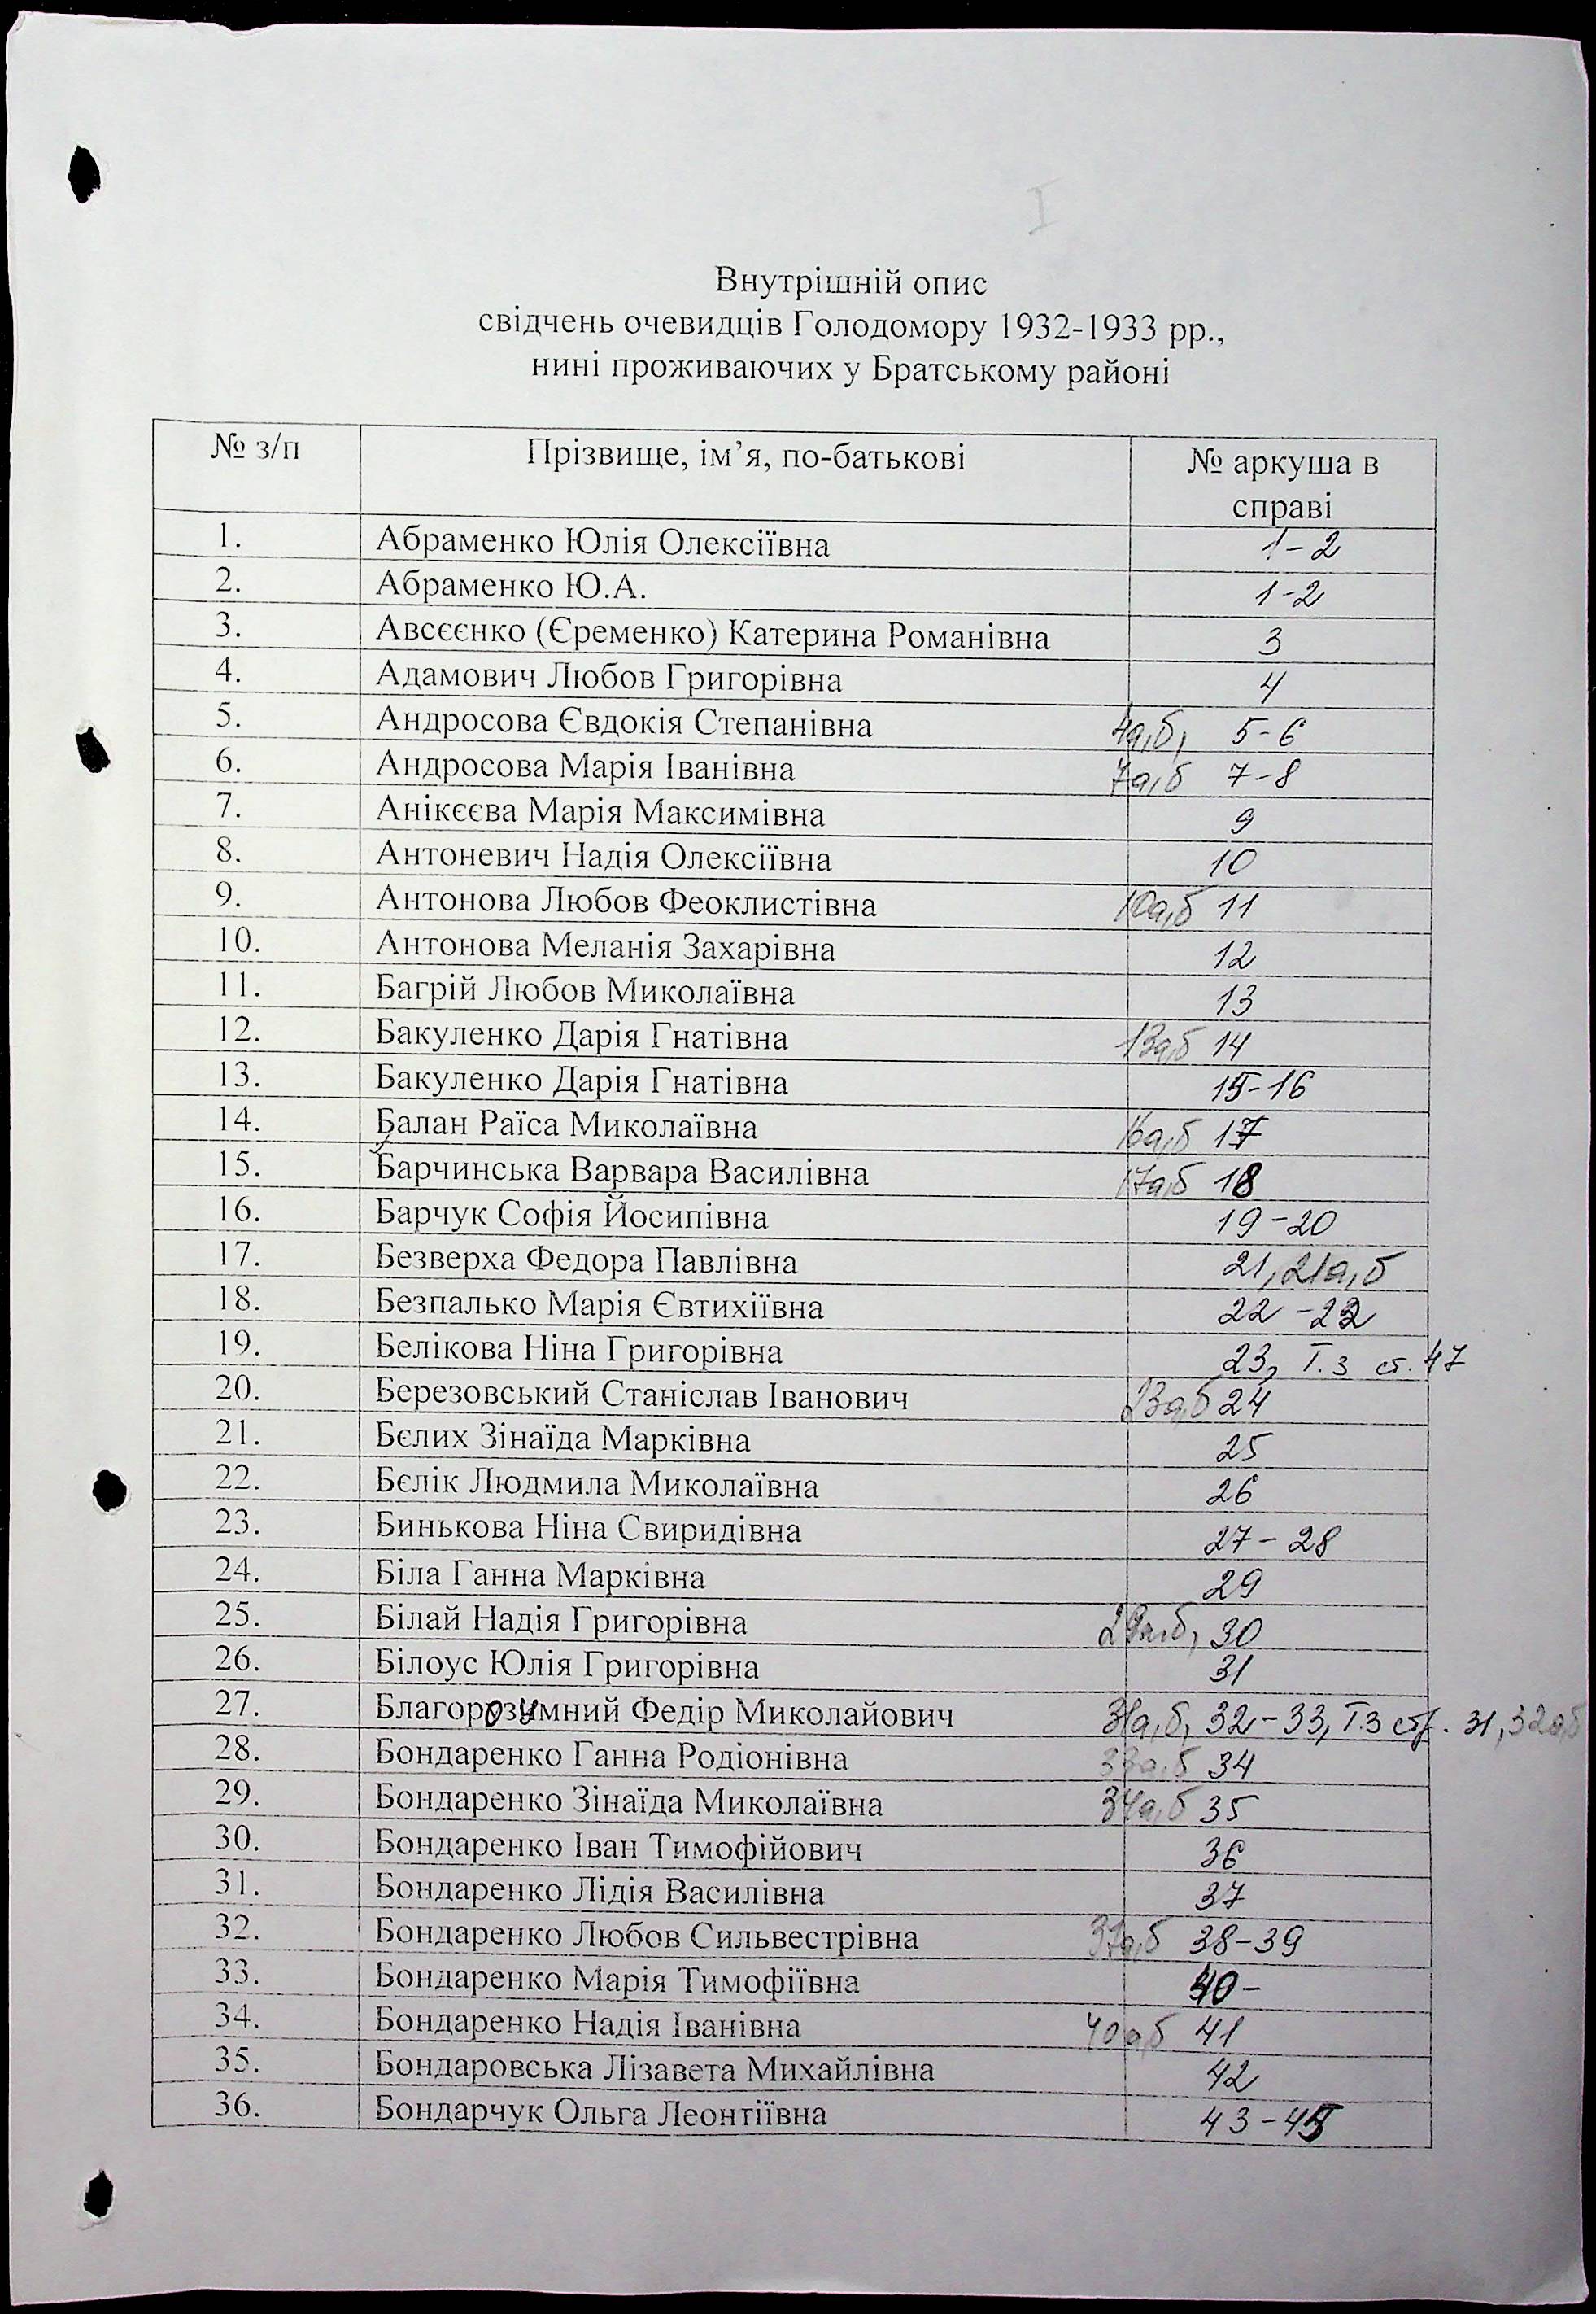 I
Внутрішній опис
свідчень очевидців Голодомору 1932-1933 рр.,
нині проживаючих у Братському районі
№ з/п Прізвище, ім’я, по-батькові № аркуша в
справі
1. Абраменко Юлія Олексіївна 1-2
2. Абраменко Ю.А. 1-2
3. Авсєєнко (Єременко) Катерина Романівна 3
4. Адамович Любов Григорівна 4
5. Андросова Євдокія Степанівна 4а,б, 5-6
6. Андросова Марія Іванівна 7а,б 7-8
7. Анікєєва Марія Максимівна 9
8. Антоневич Надія Олексіївна 10
9. Антонова Любов Феоклистівна 10а,б 11
10. Антонова Меланія Захарівна 12
11. Багрій Любов Миколаївна 13
12. Бакуленко Дарія Гнатівна 13а,б 14
13. Бакуленко Дарія Гнатівна 15-16
14. Балан Раїса Миколаївна 16а,б 17
15. Барчинська Варвара Василівна 17а,б 18
16. Барчук Софія Йосипівна 19-20
17. Безверха Федора Павлівна 21, 21а,б
18. Безпалько Марія Євтихіївна 22-22
19. Белікова Ніна Григорівна 23, Т.3 ст. 47
20. Березовський Станіслав Іванович 23а,б 24
21. Бєлих Зінаїда Марківна 25
22. Бєлік Людмила Миколаївна 26
23. Бинькова Ніна Свиридівна 27-28
24. Біла Ганна Марківна 29
25. Білай Надія Григорівна 29а,б, 30
26. Білоус Юлія Григорівна 31
27. Благорозумний Федір Миколайович 31а,б, 32-33, Т.3 стр. 31, 32а,б
28. Бондаренко Ганна Родіонівна 33а,б 34
29. Бондаренко Зінаїда Миколаївна 34а,б 35
30. Бондаренко Іван Тимофійович 36
31. Бондаренко Лідія Василівна 37
32. Бондаренко Любов Сильвестрівна 37а,б 38-39
33. Бондаренко Марія Тимофіївна 40-
34. Бондаренко Надія Іванівна 40а,б 41
35. Бондаровська Лізавета Михайлівна 42
36. Бондарчук Ольга Леонтіївна 43-45